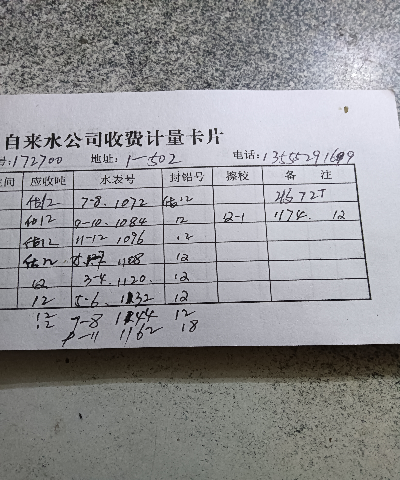 自来水公司收费计量卡片
号:172700 地址:1-502 电话:13555291699
间 应收吨 水表号 封铅号 擦校 备 注
估12 7-8、1072 估12 72T
估12 9-10、1084 12 12-1 1174. 12
估12 11-12 1096 12
估12 1108 12
12 3-4、1120、 12
12 5-6、1132 12
12 7-8 1144 12
12 9-11 1162 18